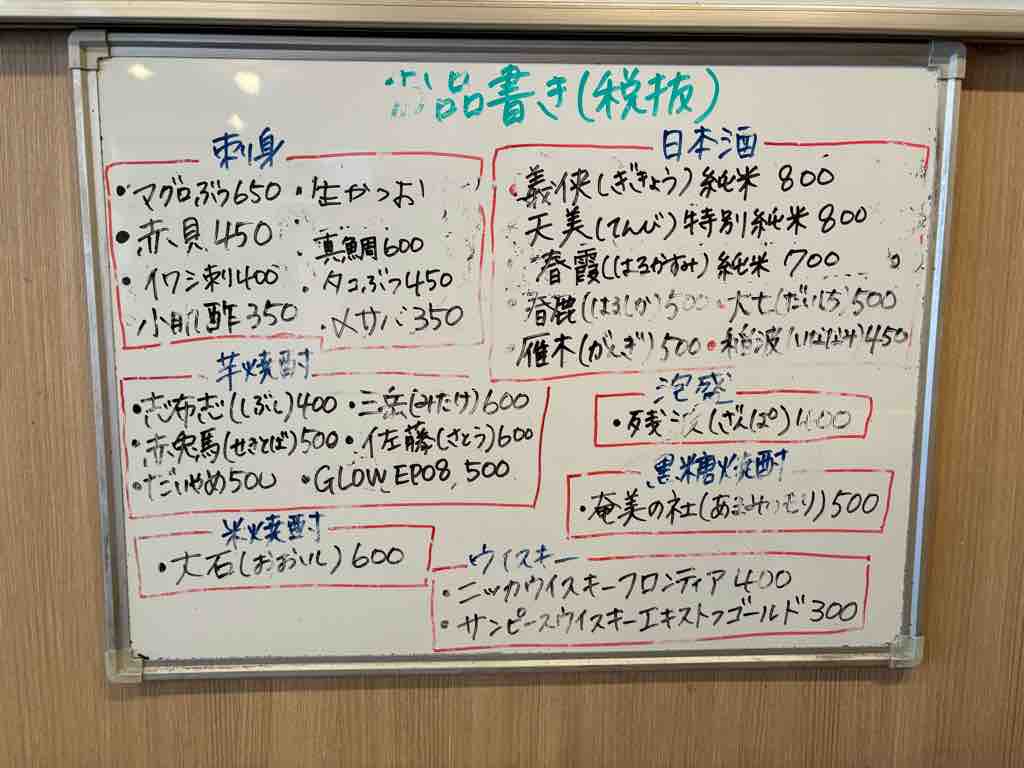 品書き(税抜)
刺身
・マグロぶつ650 ・生かつお
・赤貝450 ・真鯛600
・イワシ刺400 ・タコぶつ450
小肌酢350 ・〆サバ350
日本酒
・義侠(ぎきょう)純米 800
天美(てんび)特別純米 800
春霞(はるかすみ)純米 700
春鹿(はるしか)500 ・大七(だいしち)500
雁木(がんぎ)500 ・稲波(いなばみ)450
芋焼酎
・志布志(しぶし)400 ・三岳(みたけ)600
・赤兎馬(せきとば)500 ・佐藤(さとう)600
・だいやめ500 ・GLOW EP08, 500
泡盛
・残波(ざんぱ)400
黒糖焼酎
・奄美の社(あまみのもり)500
米焼酎
・大石(おおいし)600
ウイスキー
・ニッカウイスキーフロンティア400
・サンピースウイスキーエキストラゴールド300